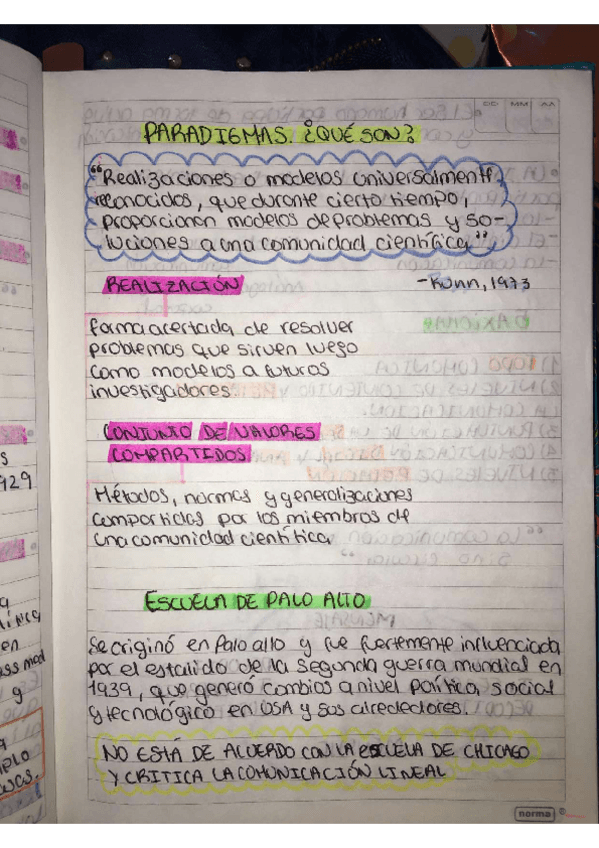 DD MM AA
PARADIGMAS. ¿QUÉ SON?
"Realizaciones o modelos universalment
reconocidos, que durante cierto tiempo,
proporcionan modelos de problemas y so-
luciones a una comunidad científica."
REALIZACIÓN
-Kunn, 1973
forma acertada de resolver
problemas que sirven luego
como modelos a futuros
investigadores
CONJUNTO DE VALORES
COMPARTIDOS
Métodos, normas y generalizaciones
compartidas por los miembros de
una comunidad científica.
ESCUELA DE PALO ALTO
Se originó en Palo allo y fue fuertemente influenciada
por el estallido de la Segunda guerra mundial en
1939, que generó cambios a nivel político, social
y tecnológico en USA y sus alrededores.
NO ESTÁ DE ACUERDO CON LA ESCUELA DE CHICAGO
Y CRITICA LA COMUNICACIÓN LINEAL
norma